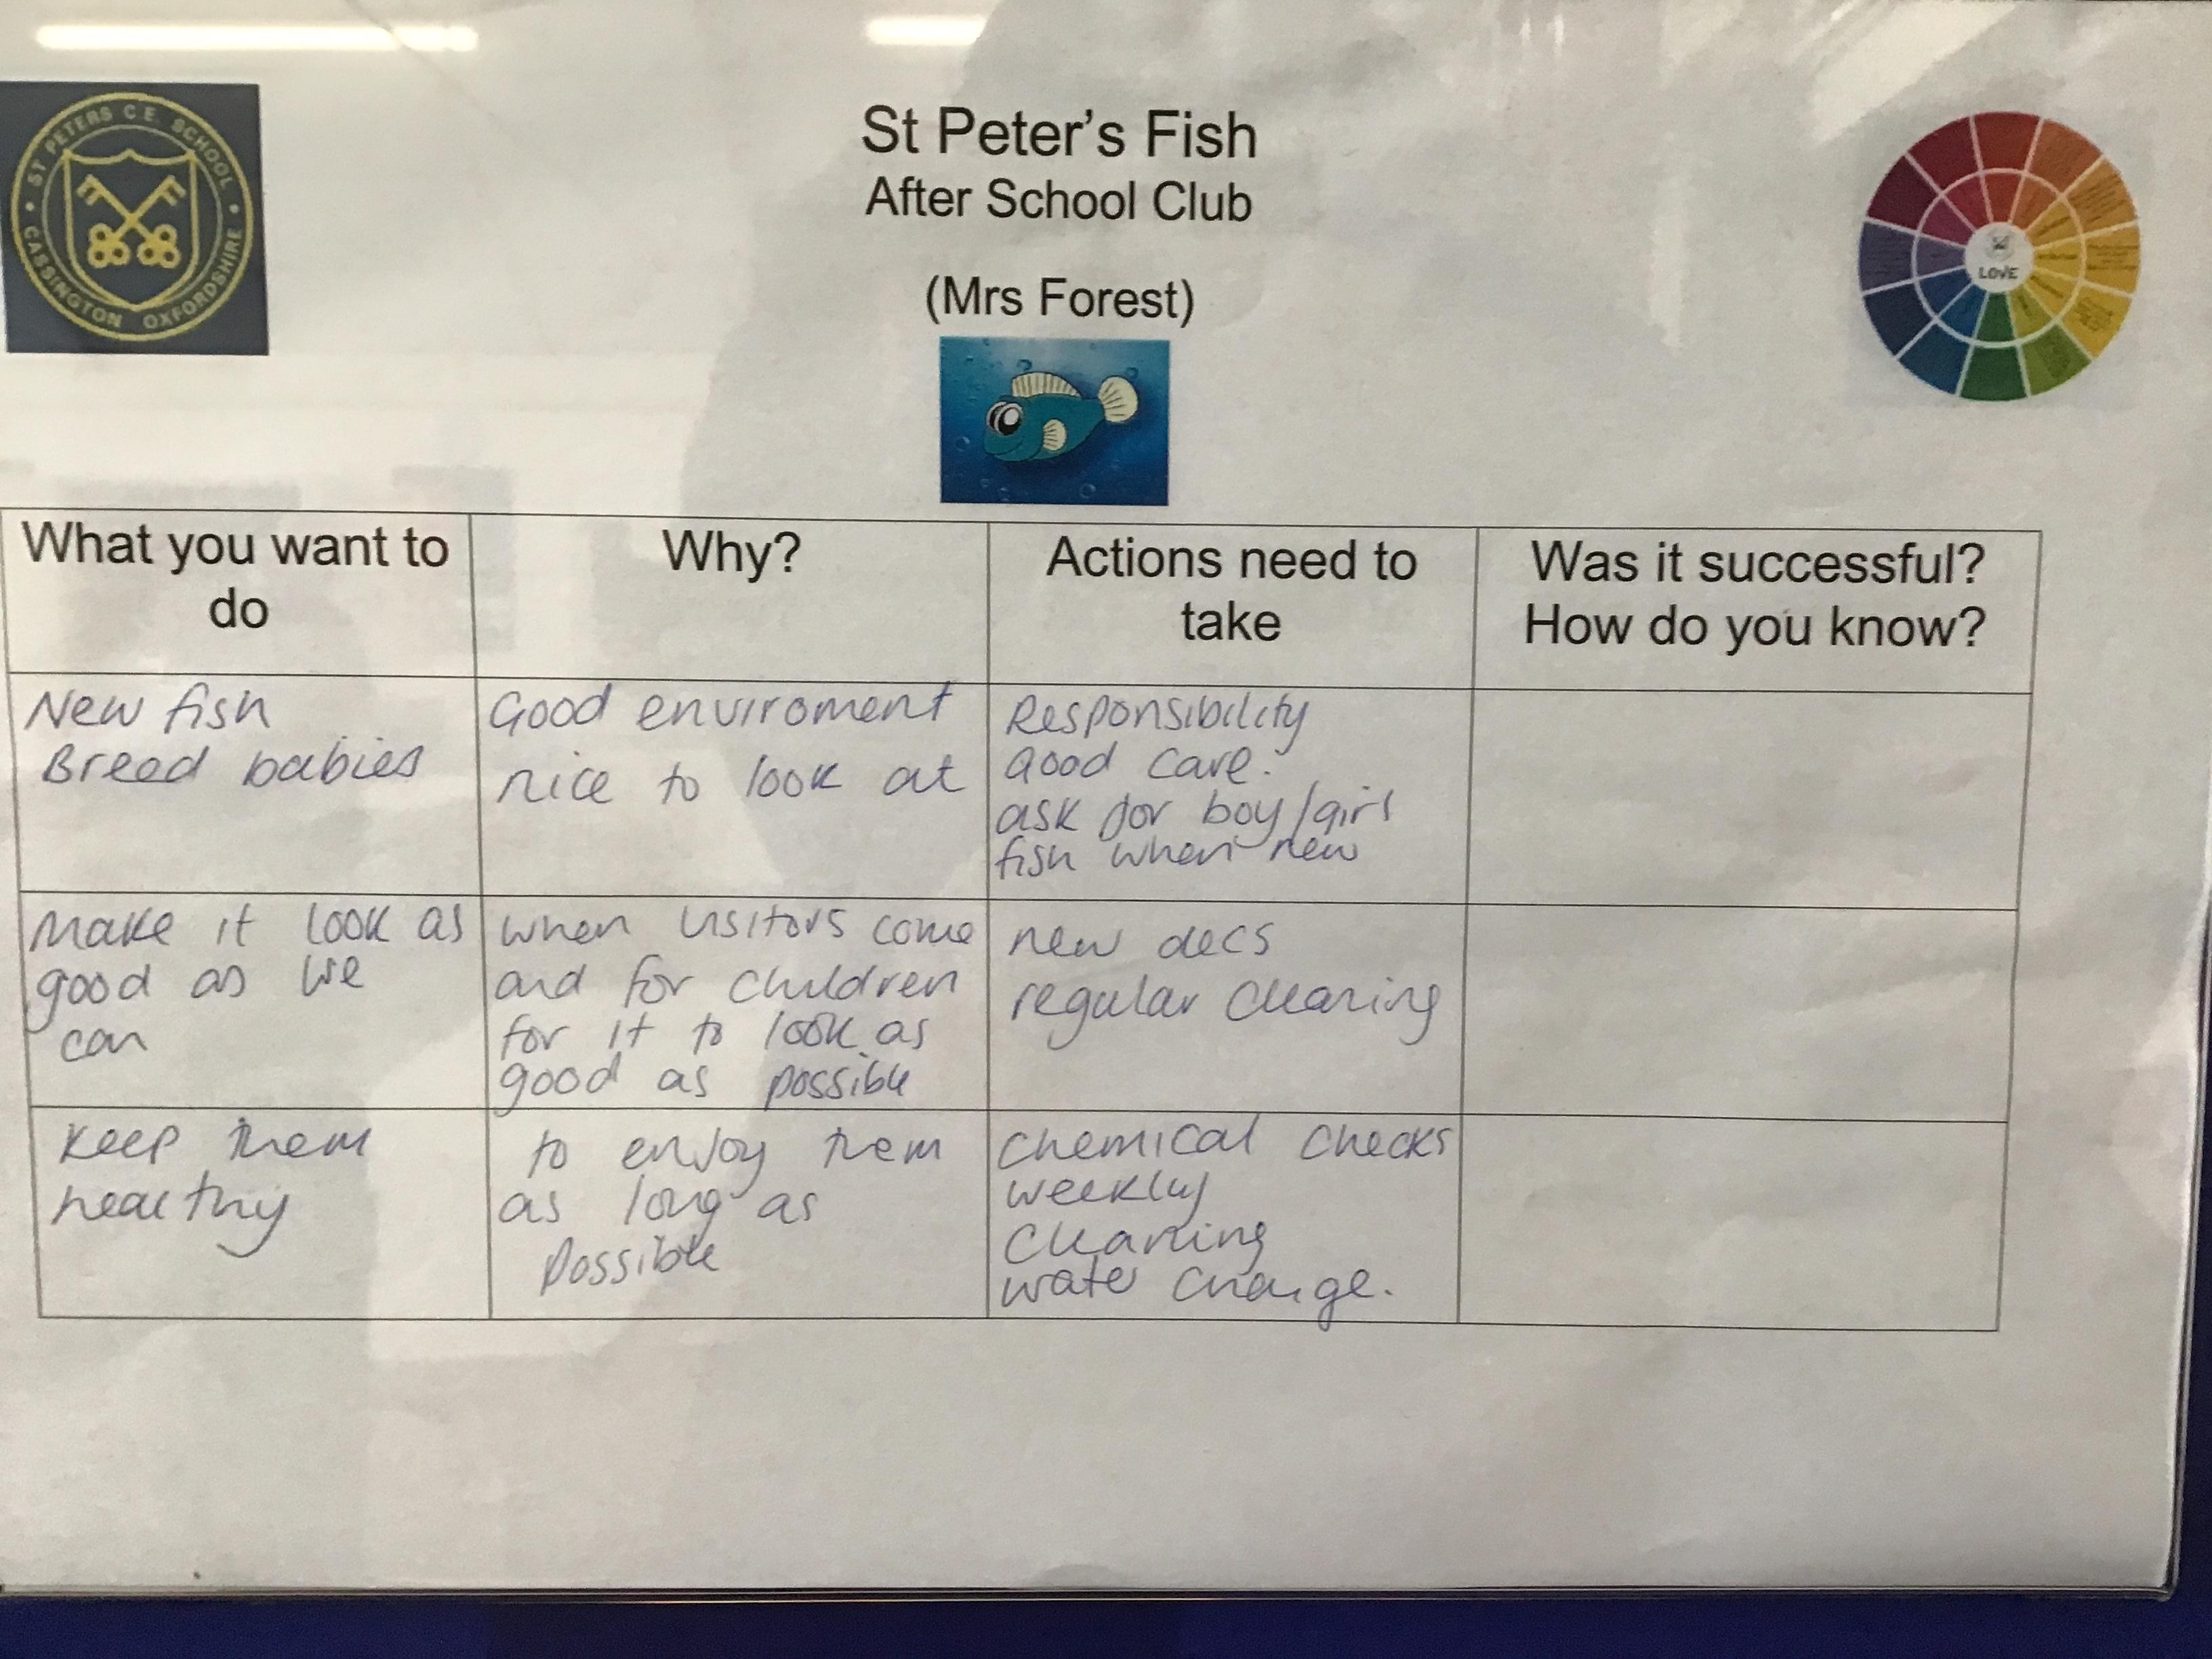 ST PETERS C.E. SCHOOL
CASSINGTON OXFORDSHIRE
St Peter's Fish
After School Club
(Mrs Forest)
LOVE
What you want to
do
Why?
Actions need to
take
Was it successful?
How do you know?
New fish
Breed babies
Good enviroment
nice to look at
Responsibility
Good care.
ask for boy/girl
fish when new
Make it look as
good as we
can
when visitors come
and for children
for it to look as
good as possible
new decs
regular cleaning
keep them
healthy
to enjoy them
as long as
possible
Chemical checks
weekly
Cleaning
water change.